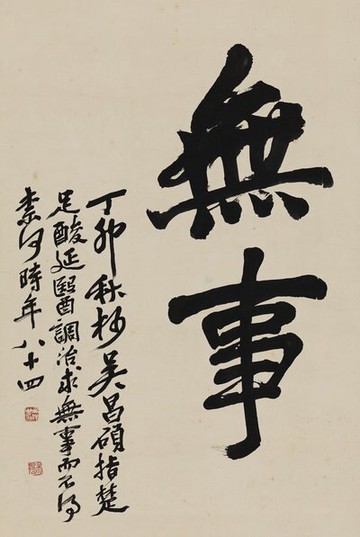 無事
丁卯秋杪吳昌碩指楚
足酸延醫調治求無事而不得
柰何時年八十四